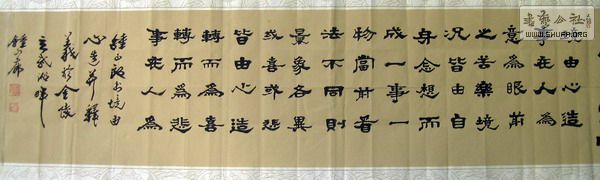 境由心造
事在人為
意為眼前
之苦樂境
况皆由自
身念想而
成一事一
物當前看
法不同則
景象各異
或喜或悲
皆由心造
轉而為喜
轉而為悲
事在人為
鍾山 書境由
心造并釋
義於金陵
玄武湖畔
鍾山
書藝公社
WWW.SHUFA.ORG